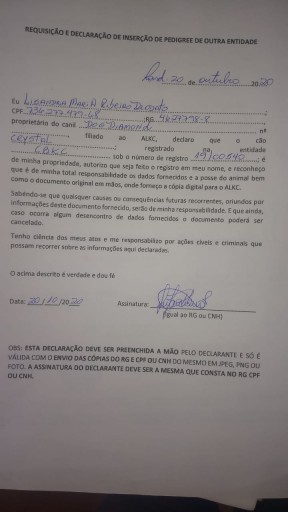 REQUISIÇÃO E DECLARAÇÃO DE INSERÇÃO DE PEDIGREE DE OUTRA ENTIDADE
20 de outubro 2020
Eu Ribeiro
CPF RG
proprietário do canil Dog Diamond nº
filiado ao ALKC, declaro que o cão
CRYSTAL registrado na entidade
CBKC sob o número de registro é
de minha propriedade, autorizo que seja feito o registro em meu nome, e reconheço
que é de minha total responsabilidade os dados fornecidos e a posse do animal bem
como o documento original em mãos, onde forneço a cópia digital para o ALKC.
Sabendo-se que quaisquer causas ou consequências futuras recorrentes, oriundos por
informações deste documento fornecido, serão de minha responsabilidade. E que ainda,
caso ocorra algum desencontro de dados fornecidos o documento poderá ser
cancelado.
Tenho ciência dos meus atos e me responsabilizo por ações cíveis o criminais que
possam recorrer sobre as informações aqui declaradas.
O acima descrito é verdade e dos fé
Data: 20/10/2020 Assinatura:
(Igual ao RG ou CNH)
OBS: ESTA DECLARAÇÃO DEVE SER PREENCHIDA A MÃO PELO DECLARANTE E SÓ É
VÁLIDA COM O ENVIO DAS CÓPIAS DO RG E CPF OU CNH DO MESMO EM JPEG, PNG OU
FOTO. A ASSINATURA DO DECLARANTE DEVE SER A MESMA QUE CONSTA NO RG CPF
OU CNH.